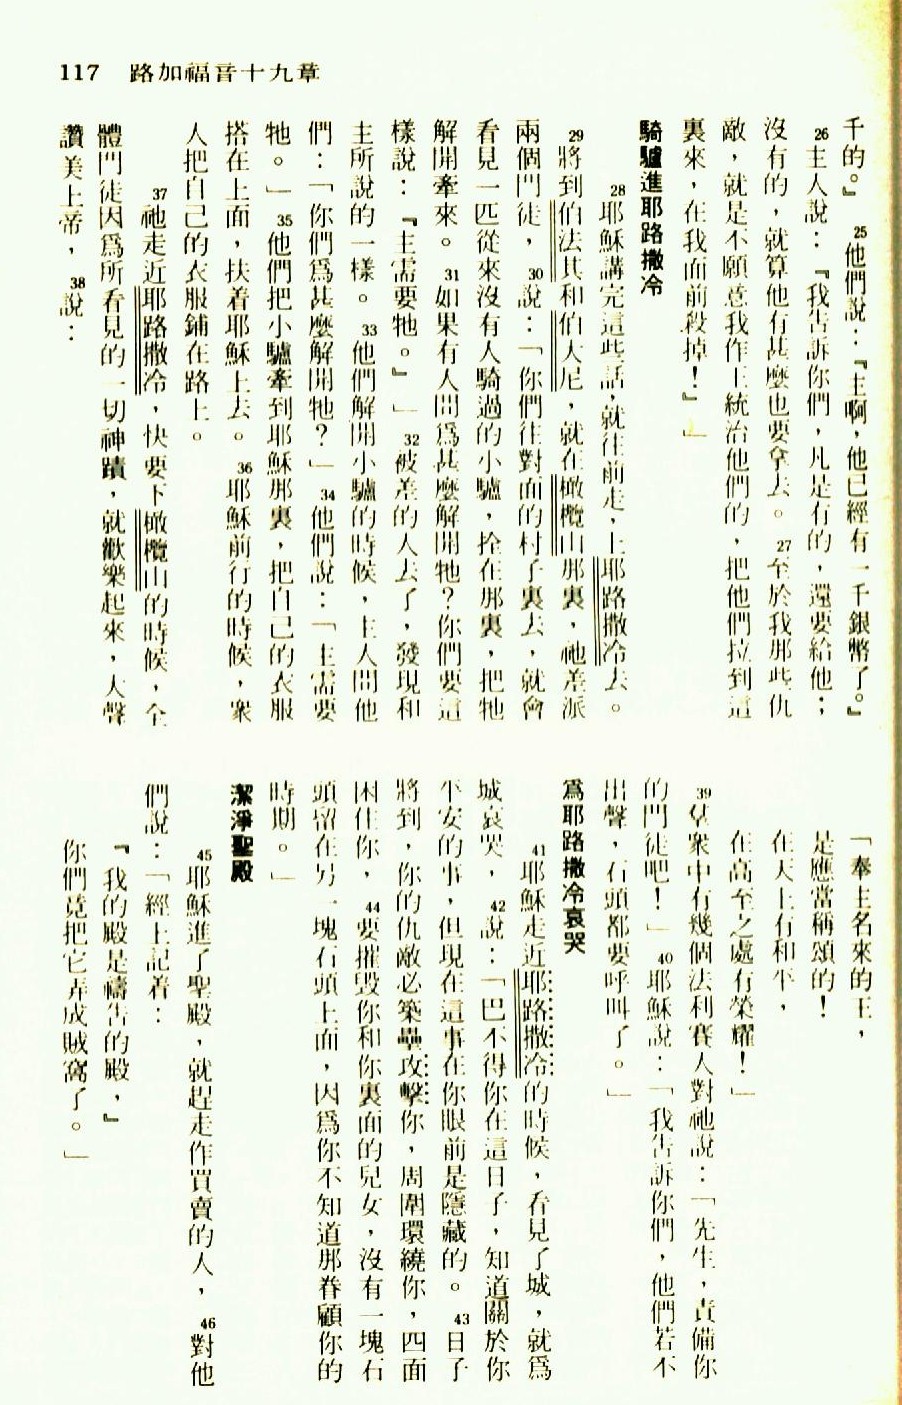 117 路加福音十九章
千的。』 25他們說：『主啊，他已經有一千銀幣了。』
26主人說：『我告訴你們，凡是有的，還要給他；
沒有的，就算他有甚麼也要拿去。 27至於我那些仇
敵，就是不願意我作王統治他們的，把他們拉到這
裏來，在我面前殺掉！』」
騎驢進耶路撒冷
28耶穌講完這些話，就往前走，上耶路撒冷去。
29將到伯法其和伯大尼，就在橄欖山那裏，祂差派
兩個門徒， 30說：「你們往對面的村子裏去，就會
看見一匹從來沒有人騎過的小驢，拴在那裏，把牠
解開牽來。 31如果有人問爲甚麼解開牠？你們要這
樣說：『主需要牠。』」 32被差的人去了，發現和
主所說的一樣。 33他們解開小驢的時候，主人問他
們：「你們爲甚麼解開牠？」 34他們說：「主需要
牠。」 35他們把小驢牽到耶穌那裏，把自己的衣服
搭在上面，扶着耶穌上去。 36耶穌前行的時候，衆
人把自己的衣服鋪在路上。
37祂走近耶路撒冷，快要下橄欖山的時候，全
體門徒因爲所看見的一切神蹟，就歡樂起來，大聲
讚美上帝， 38說：
「奉主名來的王，
是應當稱頌的！
在天上有和平，
在高至之處有榮耀！」
39羣衆中有幾個法利賽人對祂說：「先生，責備你
的門徒吧！」 40耶穌說：「我告訴你們，他們若不
出聲，石頭都要呼叫了。」
爲耶路撒冷哀哭
41耶穌走近耶路撒冷的時候，看見了城，就爲
城哀哭， 42說：「巴不得你在這日子，知道關於你
平安的事，但現在這事在你眼前是隱藏的。 43日子
將到，你的仇敵必築壘攻擊你，周圍環繞你，四面
困住你， 44要摧毀你和你裏面的兒女，沒有一塊石
頭留在另一塊石頭上面，因爲你不知道那眷顧你的
時期。」
潔淨聖殿
45耶穌進了聖殿，就趕走作買賣的人， 46對他
們說：「經上記着：
『我的殿是禱告的殿，』
你們竟把它弄成賊窩了。」